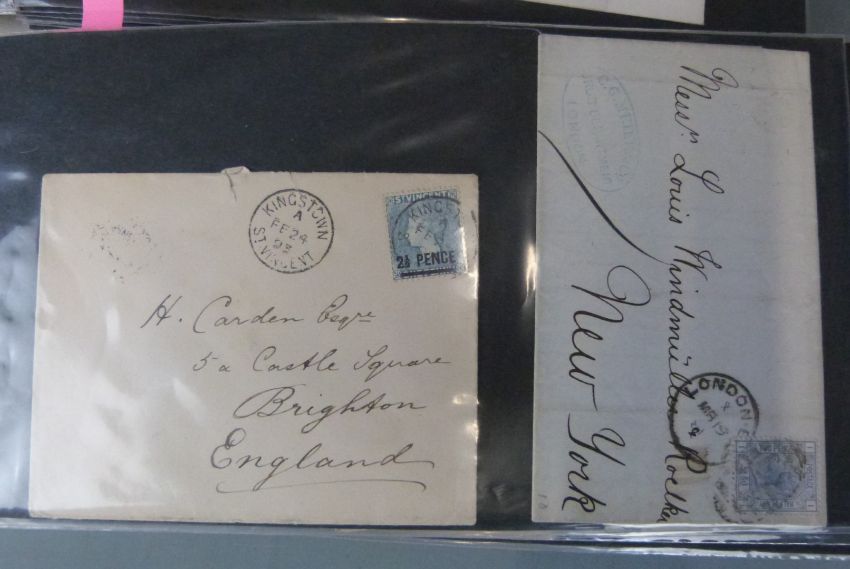 KINGSTOWN
A
FE 24
93
ST VINCENT
ST VINCENT
KINGST
FE
2½ PENCE
H. Carden Esqre
5a Castle Square
Brighton
England
LONDON
Messrs Louis Windmüller Roelker
New York
LONDON E
MR 19